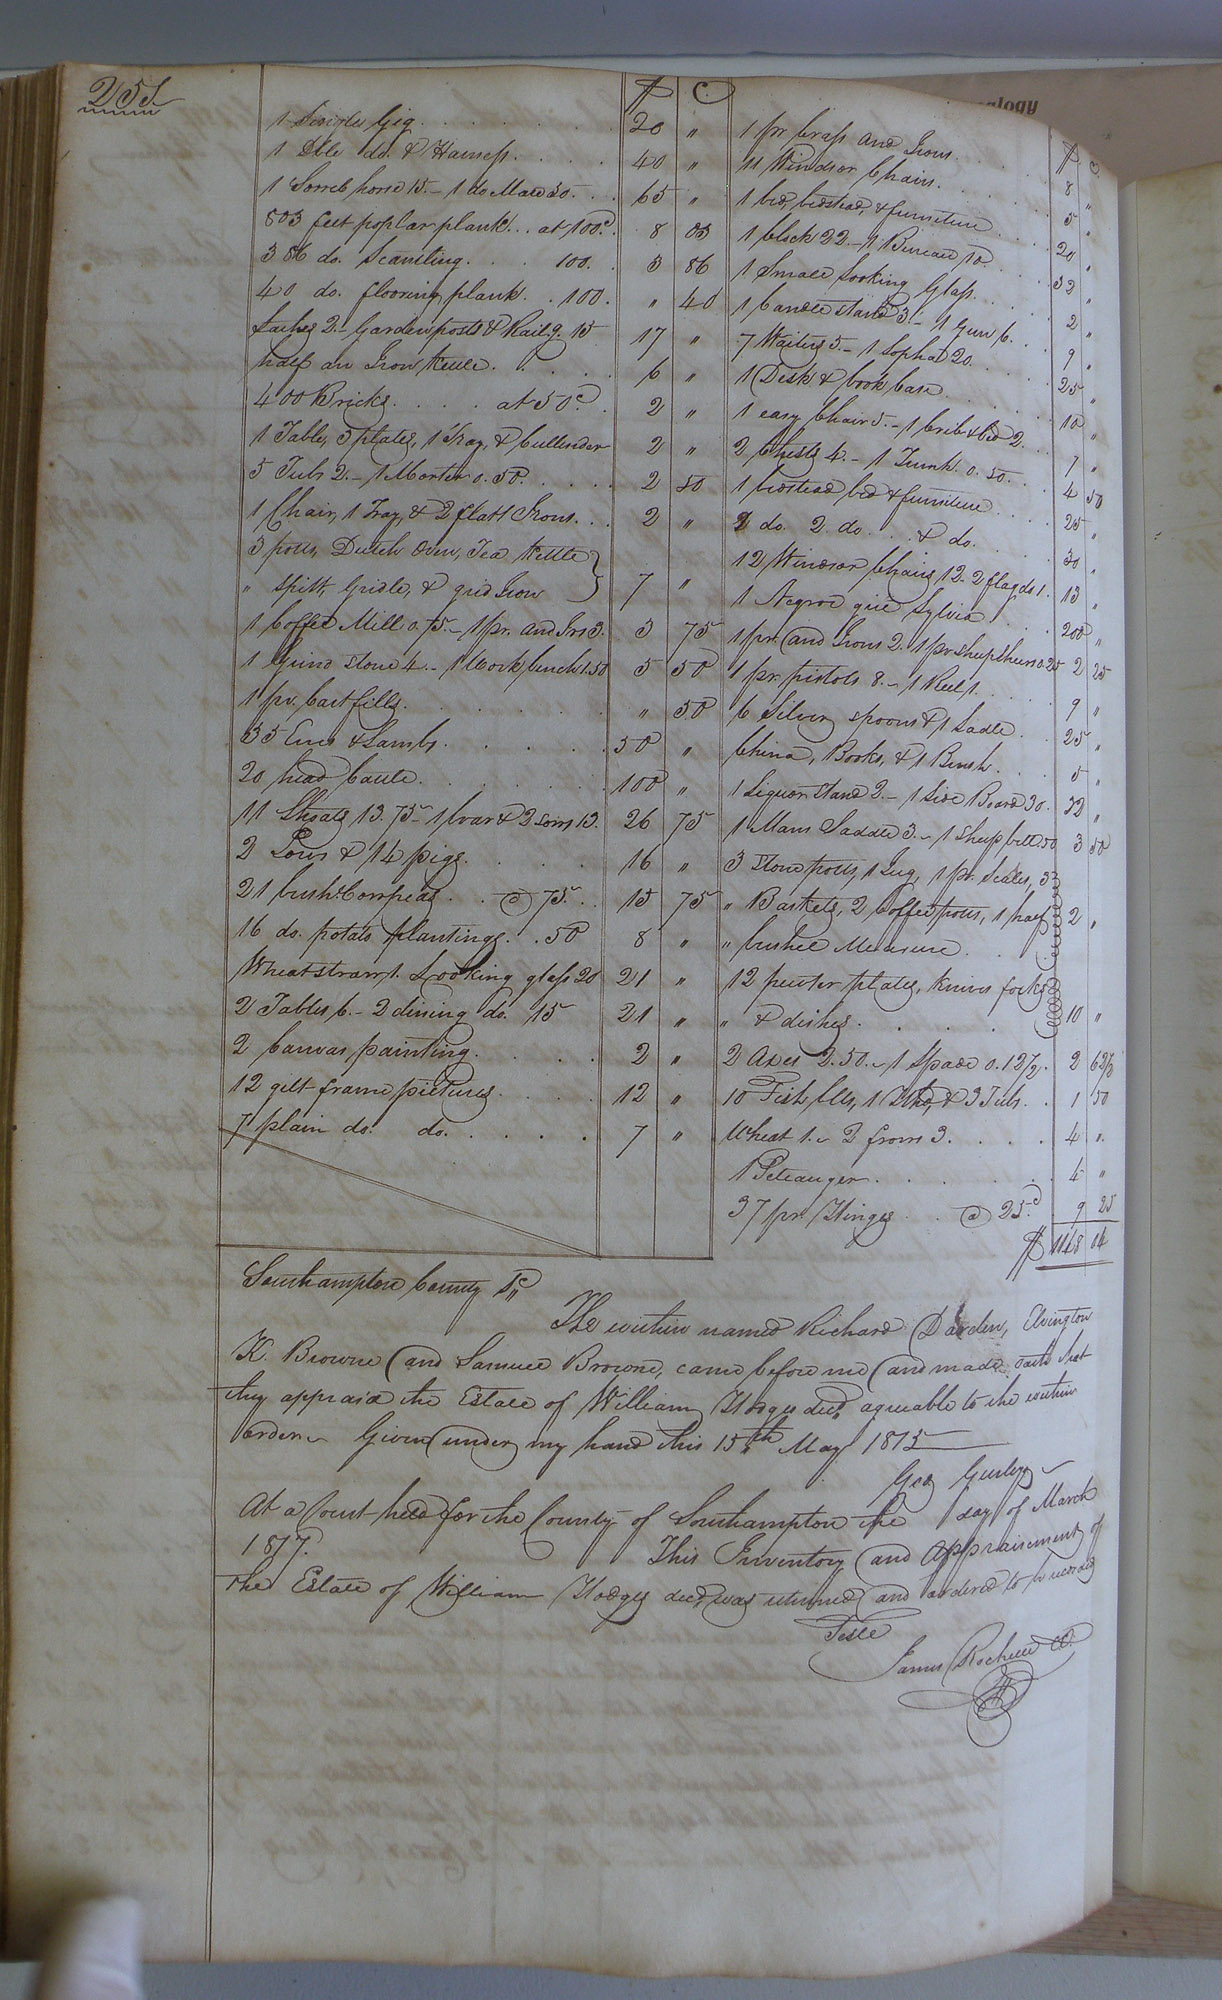 251
$ C
1 Single Gig 20 "
1 Dble do. & Harness 40 "
1 Sorrel horse 15.- 1 do Mare 50. 65 "
803 feet poplar plank at 100c. 8 03
386 do. Scantling. 100. 3 86
40 do. flooring plank. 100. " 40
Laths 2.- Garden posts & Railg. 15 17 "
half an Iron Kettle. 6 "
400 Bricks at 50c. 2 "
1 Table, 3 plates, 1 Tray, & Cullender 2 "
5 Tubs 2.- 1 Morter 0.50. 2 50
1 Chair, 1 Tray, & 2 flatt Irons. 2 "
3 potts, Dutch Oven, Tea Kettle
" spitt, Gridle, & grid Iron 7 "
1 Coffee Mill 0.75.- 1 pr. And Irs 3. 3 75
1 Grind stone 4.- 1 Work bench 1.50 5 50
1 pr. Cart fills. " 50
35 Ewes & Lambs. 50 "
20 head Cattle. 100 "
11 Shoats 13.75- 1 boar & 2 sows 13. 26 75
2 Sows & 14 pigs. 16 "
21 bush. Cornpeas @ 75. 15 75
16 do. potato plantings. 50 8 "
Wheat straw 1. Looking glass 20 21 "
2 Tables 6.- 2 dining do. 15 21 "
2 Canvas painting. 2 "
12 gilt frame pictures. 12 "
7 plain do. do. 7 "
$ C.
1 pr brass And Irons. 8 "
11 Windsor Chairs. 5 "
1 bed, bedstead, & furniture 20 "
1 clock 22.- 1 Bureau 10. 32 "
1 Small Looking Glass. 2 "
1 Candle stand 3.- 1 Gun 6. 9 "
7 Waiters 5.- 1 Sopha 20. 25 "
1 Desk & book Case 10 "
1 easy Chair 5.- 1 Crib & bed 2. 7 "
2 Chests 4.- 1 Trunk 0.50. 4 50
1 bedstead bed & furniture 25 "
2 do. 2. do. & do. 30 "
12 Windsor Chairs 12. 2 flag do 1. 13 "
1 Negroe girl Sylvia 200 "
1 pr. And Irons 2. 1 pr sheep shears 0.25 2 25
1 pr. pistols 8.- 1 Reel 1. 9 "
6 Silver spoons & 1 Ladle. 25 "
China, Books, & 1 Brush. 5 "
1 Liquor stand 2.- 1 Side Board 30. 32 "
1 Mans Saddle 3.- 1 sheep bell 50 3 50
3 stone potts, 1 Jug, 1 pr. Scales, 3
" Baskets, 2 Coffee potts, 1 half 2 "
" bushel Measure.
12 pewter plates, knives forks
" & dishes. 10 "
2 Axes 2.50.- 1 Spade 0.12½. 2 62½
10 Fish 1 & 3 Tubs. 1 50
Wheat 1.- 2 3. 4 "
1 Peteauger 4 "
37 pr. Hinges @ 25c. 9 25
$ 1148 04
Southampton County Sct
The within named Richard Darden, Elvington
K. Browne and Samuel Browne, came before me and made oath that
they appraisd the Estate of William Hodges decd. agreeable to the within
order. Given under my hand this 15th May 1815
Geo Gurley
At a Court held for the County of Southampton the day of March
1817. This Inventory and Appraisement of
the Estate of William Hodges decd. was returned and ordered to be recorded
Teste
James Rochelle CC.